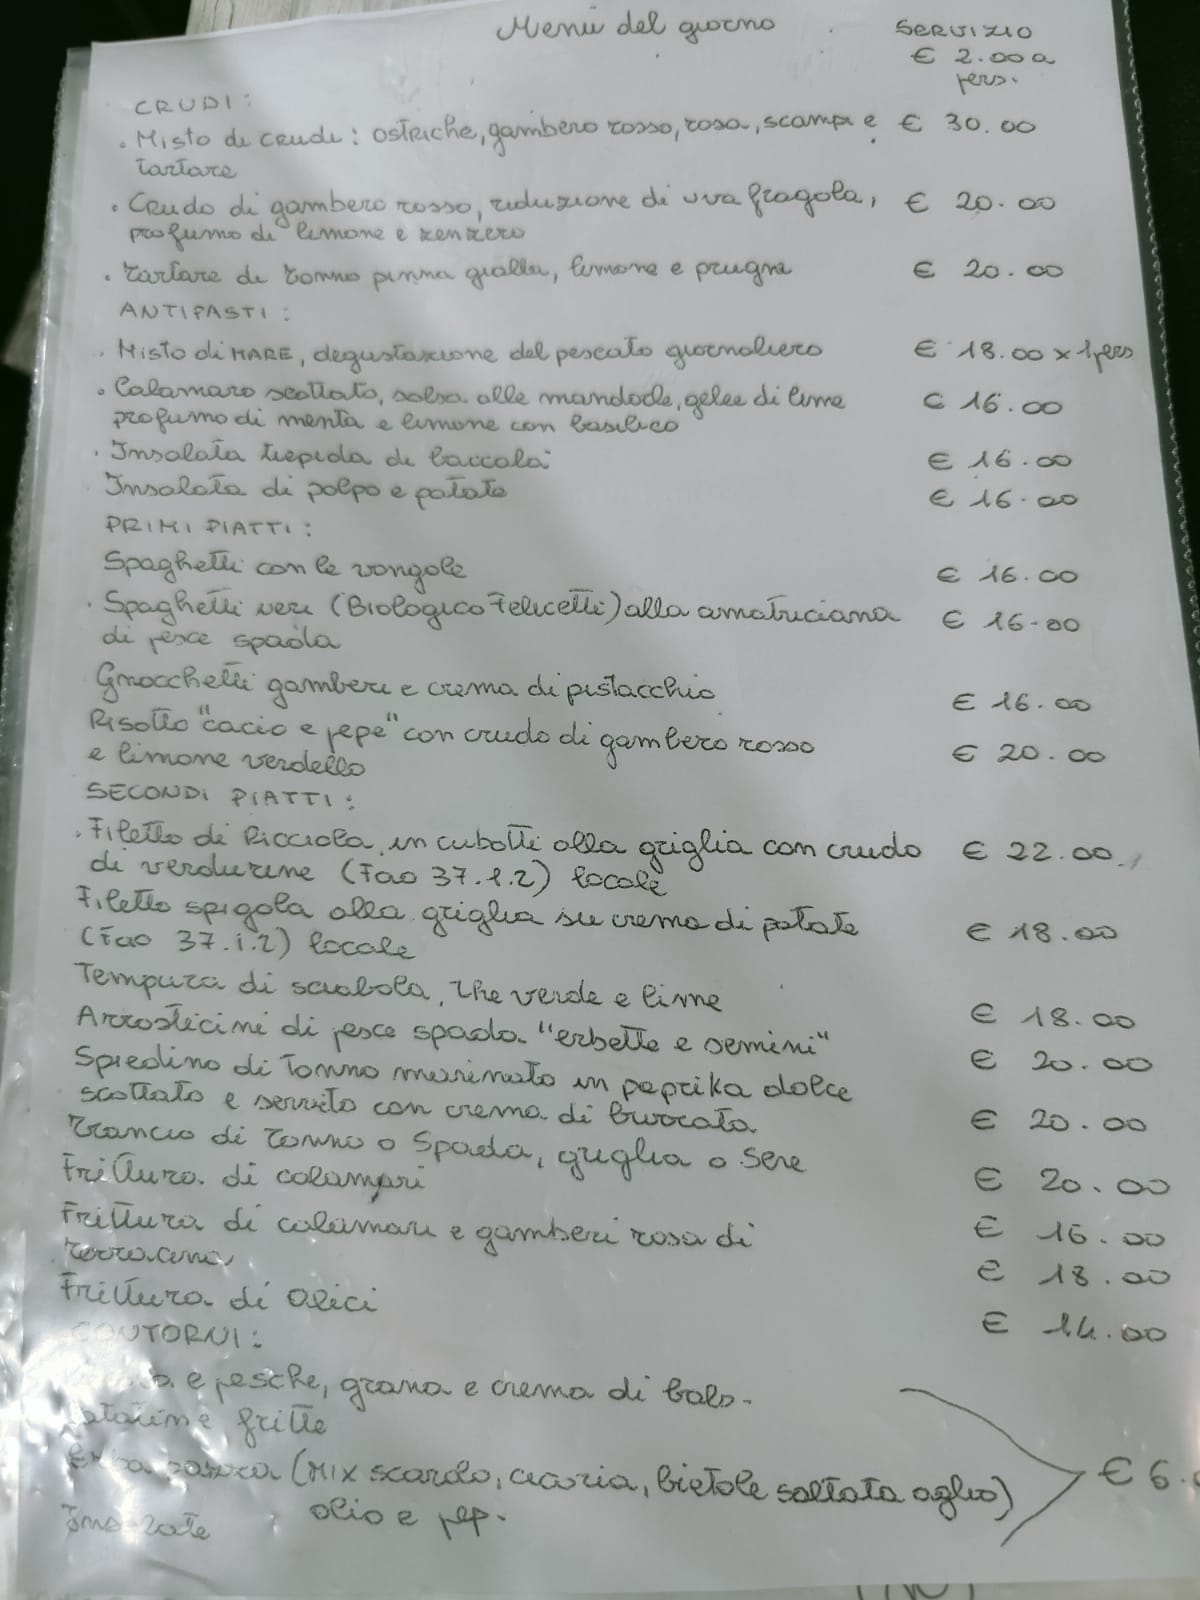 Menù del giorno
SERVIZIO
€ 2.00 a
pers.
CRUDI:
. Misto di crudi: ostriche, gambero rosso, rosa, scampi e € 30.00
tartare
. Crudo di gambero rosso, riduzione di uva fragola, € 20.00
profumo di limone e zenzero
. Tartare di tonno pinna gialla, limone e prugne € 20.00
ANTIPASTI:
. Misto di MARE, degustazione del pescato giornaliero € 18.00 x 1 pers
. Calamaro scottato, salsa alle mandorle, gelee di lime € 16.00
profumo di menta e limone con basilico
. Insalata tiepida di baccalà € 16.00
Insalata di polpo e patate € 16.00
PRIMI PIATTI:
Spaghetti con le vongole € 16.00
. Spaghetti neri (Biologico Felicetti) alla amatriciana € 16.00
di pesce spada
Gnocchetti gamberi e crema di pistacchio € 16.00
Risotto "cacio e pepe" con crudo di gambero rosso € 20.00
e limone verdello
SECONDI PIATTI:
. Filetto di Ricciola in cubotti alla griglia con crudo € 22.00
di verdurine (Fao 37.1.2) locale
Filetto spigola alla griglia su crema di patate € 18.00
(Fao 37.1.2) locale
Tempura di sciabola, the verde e lime € 18.00
Arrosticini di pesce spada "erbette e semini" € 20.00
Spiedino di Tonno marinato in paprika dolce
scottato e servito con crema di burrata € 20.00
Trancio di Tonno o Spada, griglia o sere € 20.00
Frittura di calamari € 16.00
Frittura di calamari e gamberi rosa di € 18.00
Terracina
Frittura di Alici € 14.00
CONTORNI:
e pesche, grana e crema di bals.
Patatine fritte
(MIX scarola, cicoria, bietole saltata aglio) € 6.
olio e pep.
Insalate